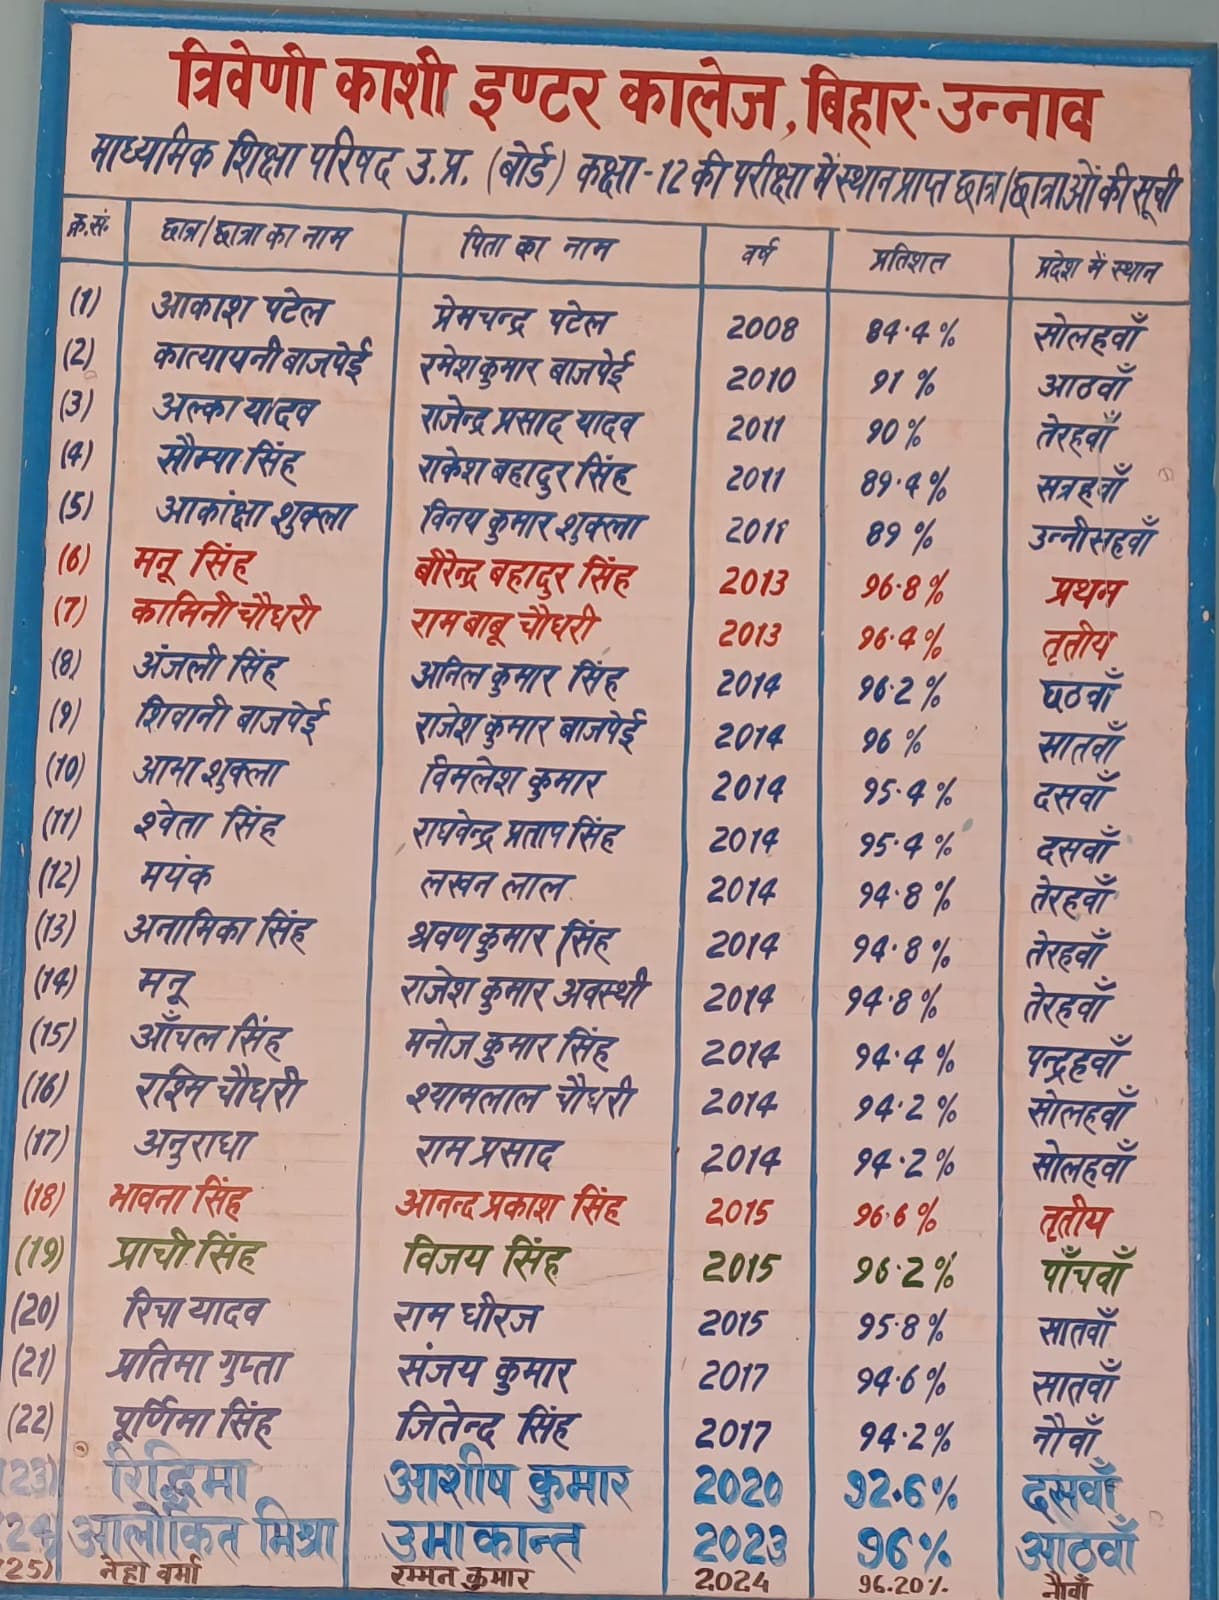 त्रिवेणी काशी इण्टर कालेज, बिहार-उन्नाव
माध्यमिक शिक्षा परिषद उ.प्र. (बोर्ड) कक्षा-12 की परीक्षा में स्थान प्राप्त छात्र/छात्राओं की सूची
क्र.सं. छात्र/छात्रा का नाम पिता का नाम वर्ष प्रतिशत प्रदेश में स्थान
(1) आकाश पटेल प्रेमचन्द्र पटेल 2008 84.4% सोलहवाँ
(2) कात्यायनी बाजपेई रमेश कुमार बाजपेई 2010 91% आठवाँ
(3) अल्का यादव राजेन्द्र प्रसाद यादव 2011 90% तेरहवाँ
(4) सौम्या सिंह राकेश बहादुर सिंह 2011 89.4% सत्रहवाँ
(5) आकांक्षा शुक्ला विनय कुमार शुक्ला 2011 89% उन्नीसहवाँ
(6) मनू सिंह बीरेन्द्र बहादुर सिंह 2013 96.8% प्रथम
(7) कामिनी चौधरी राम बाबू चौधरी 2013 96.4% तृतीय
(8) अंजली सिंह अनिल कुमार सिंह 2014 96.2% छठवाँ
(9) शिवानी बाजपेई राजेश कुमार बाजपेई 2014 96% सातवाँ
(10) आभा शुक्ला विमलेश कुमार 2014 95.4% दसवाँ
(11) श्वेता सिंह राघवेन्द्र प्रताप सिंह 2014 95.4% दसवाँ
(12) मयंक लखन लाल 2014 94.8% तेरहवाँ
(13) अनामिका सिंह श्रवण कुमार सिंह 2014 94.8% तेरहवाँ
(14) मनू राजेश कुमार अवस्थी 2014 94.8% तेरहवाँ
(15) आँचल सिंह मनोज कुमार सिंह 2014 94.4% पन्द्रहवाँ
(16) रश्मि चौधरी श्यामलाल चौधरी 2014 94.2% सोलहवाँ
(17) अनुराधा राम प्रसाद 2014 94.2% सोलहवाँ
(18) भावना सिंह आनन्द प्रकाश सिंह 2015 96.6% तृतीय
(19) प्राची सिंह विजय सिंह 2015 96.2% पाँचवाँ
(20) रिचा यादव राम धीरज 2015 95.8% सातवाँ
(21) प्रतिमा गुप्ता संजय कुमार 2017 94.6% सातवाँ
(22) पूर्णिमा सिंह जितेन्द्र सिंह 2017 94.2% नौवाँ
(23) रिद्धिमा आशीष कुमार 2020 92.6% दसवाँ
(24) आलोकित मिश्रा उमाकान्त 2023 96% आठवाँ
(25) नेहा वर्मा रम्मन कुमार 2024 96.20% नौवाँ